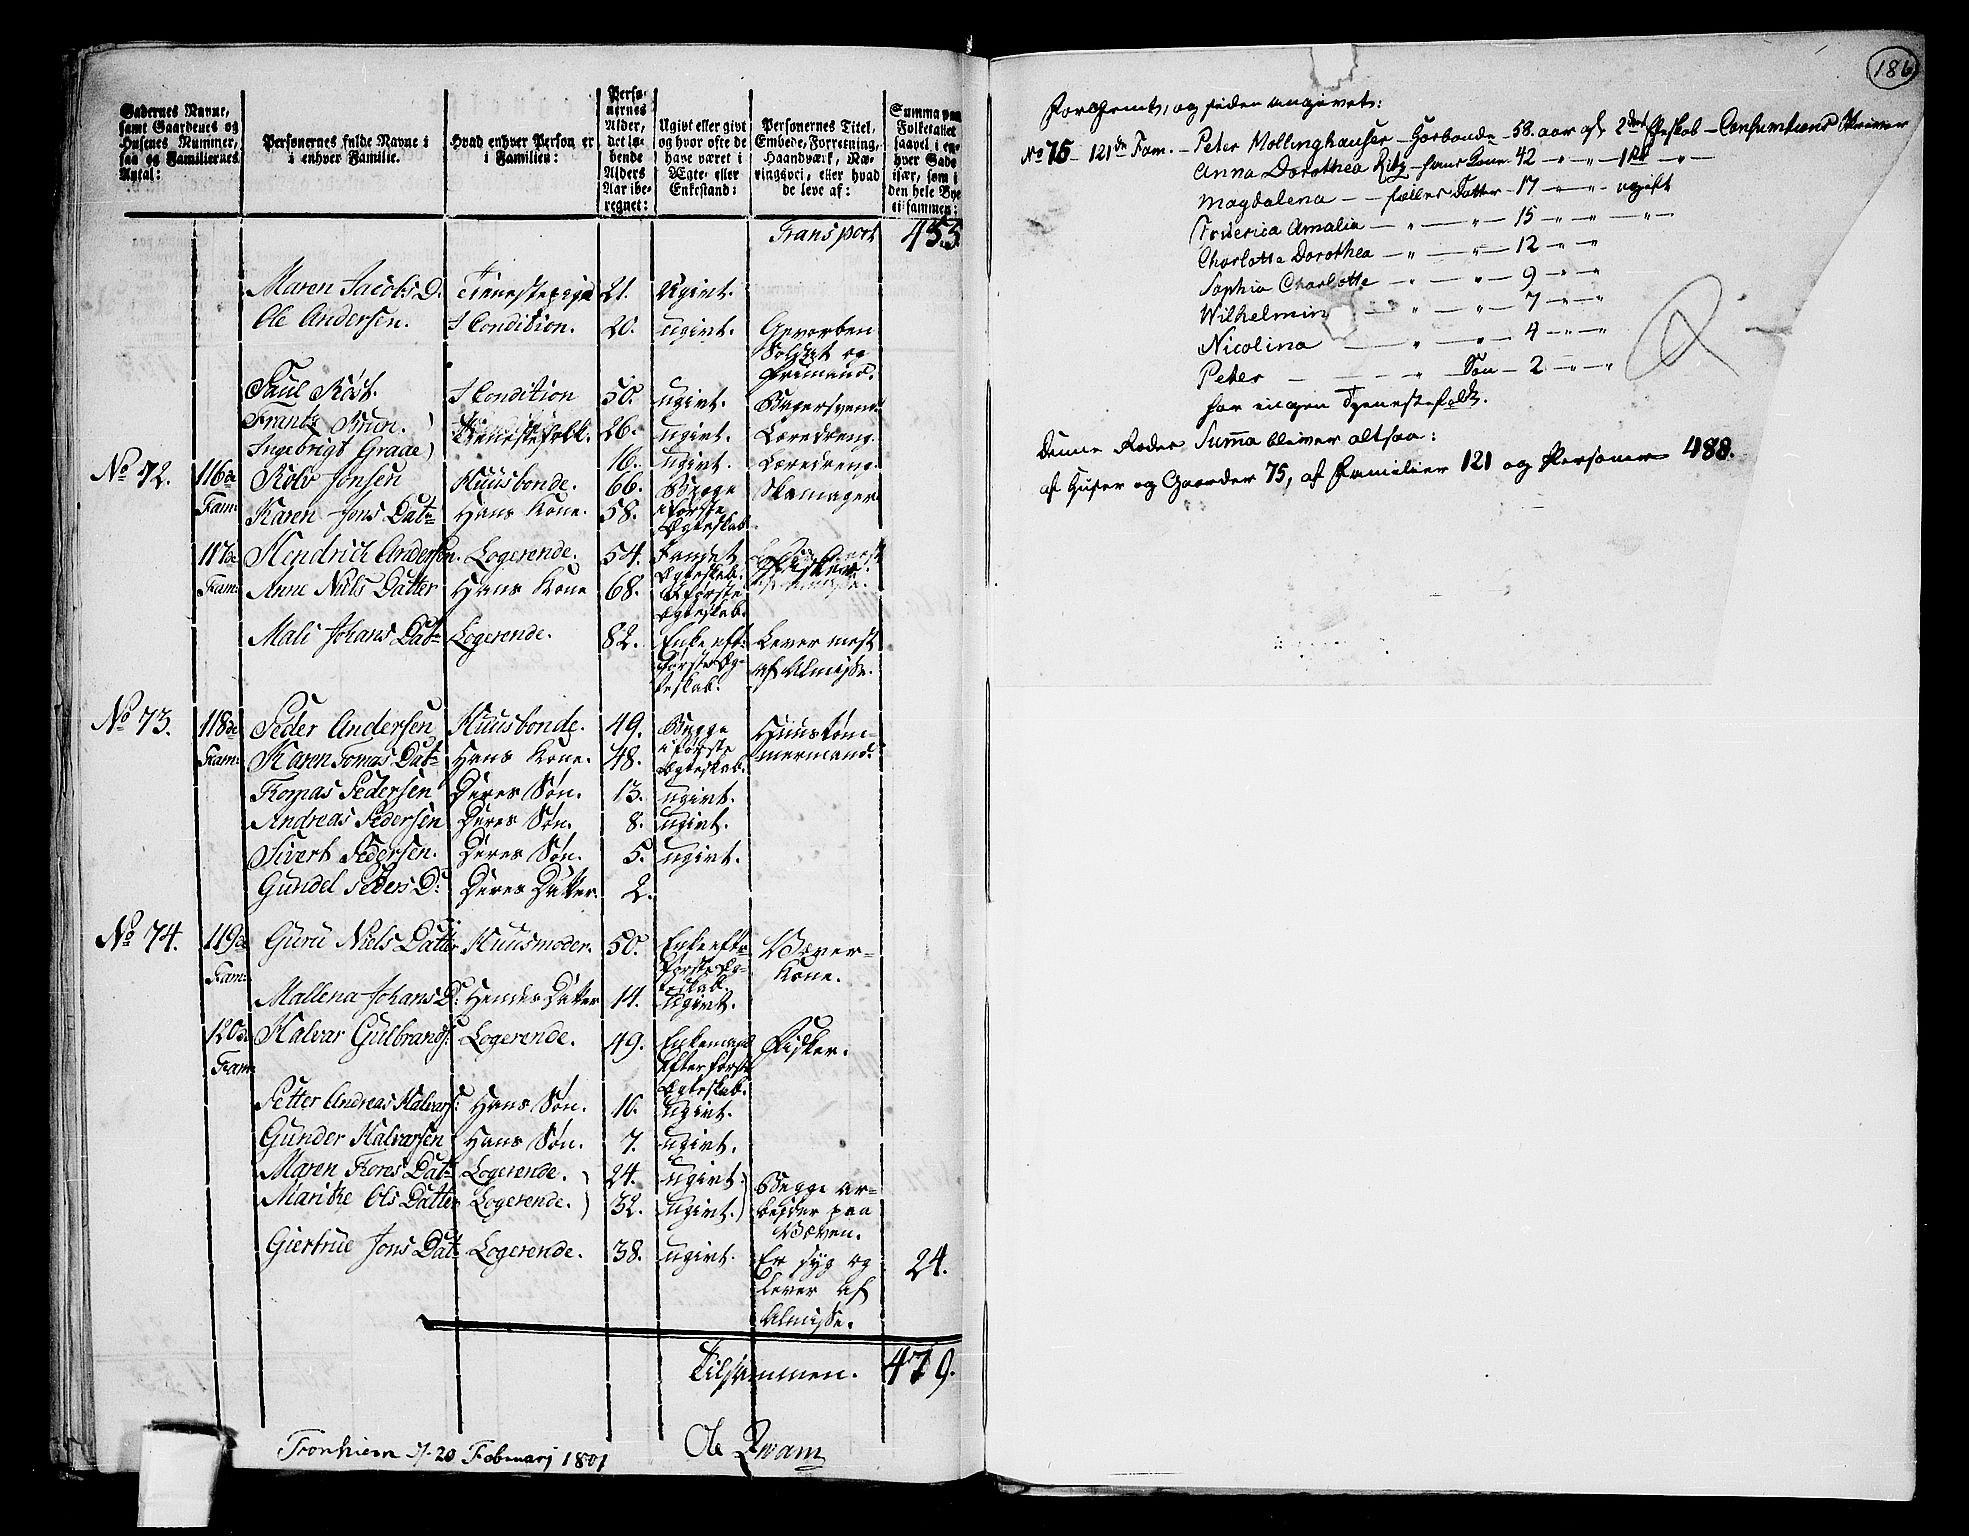 Gadernes Navne, samt Gaardenes og Husenes Nummer, saa og Familiernes Antal:
Personernes fulde Navne i enhver Familie.
Hvad enhver Person er i Familien:
Personernes Alder, det løbende Alders Aar iberegnet:
Ugivt eller givt og hvor ofte de have været i Ægte- eller Enkestand:
Personernes Titel, Embede, Forretning, Haandværk, Næringsvei, eller hvad de leve af:
Summa paa Folketallet saavel i enhver Gade især, som i den hele Bye tilsammen:
Transport 453.
Maren Jacobs D: Tienestepige 21. Ugivt.
Ole Andersen. I Condition. 20. ugivt. Gevorben Soldat og Friemand.
Paul Röst. I Condition 50. ugivt. Bagersvend.
Frantz Brun. ) Tienestefolk. 26. ugivt. Læredreng.
Ingebrigt Graae ) 16. ugivt. Læredreng.
No 72. 116de Fam: Rolv Jonsen Huusbonde. 66. Begge i første Ægteskab Skomager
Karen Jons Datr Hans Kone. 58.
117de Fam: Hendrich Andersen. Logerende. 54. I andet Ægteskab. Fisker.
Ann Niels Datter Hans Kone 68. I første Ægteskab.
Mali Johans Datr Logerende. 82. Enke eft: første Ægteskab. Lever mest af Almisse.
No 73. 118de Fam: Peder Andersen Huusbonde. 49. Begge i første Ægteskab. Huustømmermand.
Karen Tomas Datr Hans Kone. 48.
Thomas Pedersen Deres Søn. 13. ugivt.
Andreas Pedersen Deres Søn. 8. ugivt.
Sivert Pedersen. Deres Søn. 5. ugivt.
Gundel Peders D: Deres Datter. 2.
No 74. 119de Fam: Guru Niels Datter Huusmoder. 50. Enke eftr første Ægteskab. Væverkone.
Mallena Johans D: Hendes Datter 14. ugivt.
120de Fam: Halvar Gulbrands: Logerende. 49. Enkemand Efter første Ægteskab. Fisker.
Petter Andreas Halvars: Hans Søn. 10. ugivt.
Gunder Halvarsen Hans Søn. 7. ugivt.
Maren Tores Datr Logerende. ) 24. ugivt ) Begge arbeyder paa Væven.
Marithe Ols Datter Logerende. ) 32. ugivt. )
Giertrue Jons Datr Logerende. 38. ugivt. Er syg og lever af Almisse. 24.
Tilsammen. 479.
Tronhiem d. 20 Februarj 1801
Ole Qvam
186
Forglemt, og siden angivet:
No 75 - 121de Fam. - Peter Mollinghauser - Gorbonde - 58. aar af 2det Egteskab - Consumtions Skriver
Anna Dorothea Ritz - hans Kone 42 - " - " - 1ste - " -
Magdalena - - fælles Datter - 17 - " - " - ugift
Friderica Amalia - " - - " - 15 - " - " - " -
Charlotte Dorothea - " - " - 12 - " - "
Sophia Charlotte - " - " - 9 - " - "
Wilhelmin - " - " - 7 - " - "
Nicolina - " - " - 4 - " - "
Peter - - - " Søn - 2 - " - "
har ingen Tjenestefolk.
Denne Rodes Summa bliver altsaa:
af Huser og Gaarder 75, af Familier 121 og Personer 488.